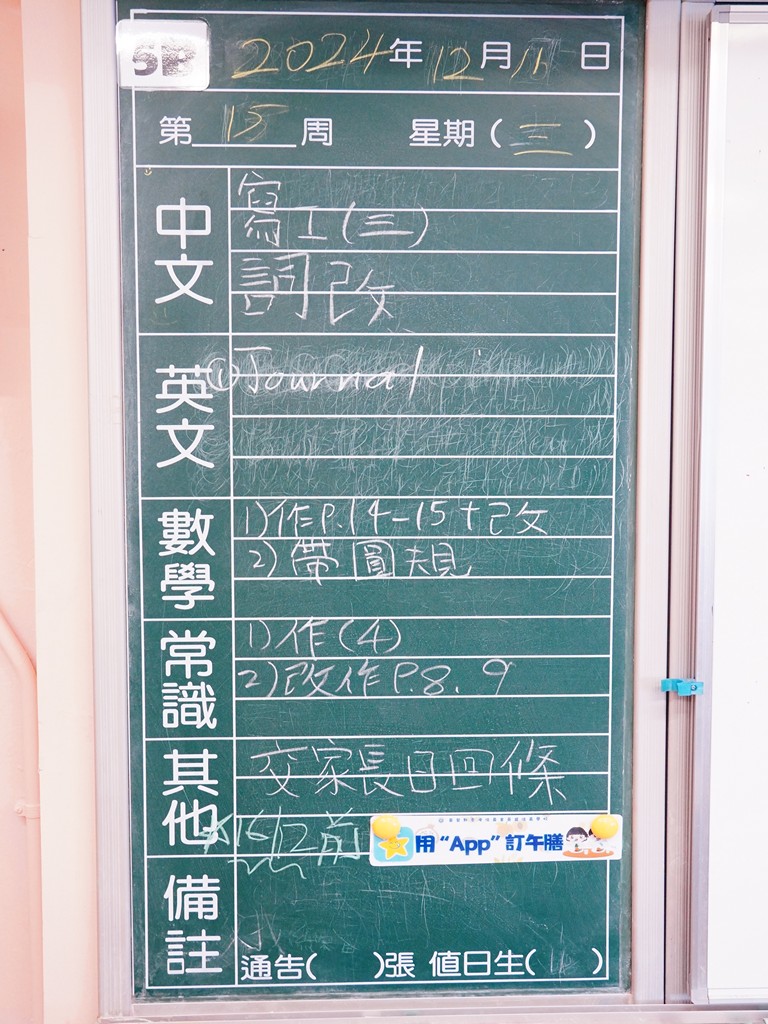 2024年12月11日
第15周 星期(三)
中文
寫工(三)
詞改
英文
①Journal
數學
1)作P.14-15+改
2)帶圓規
常識
1)作(4)
2)改作P.8、9
其他
交家長日回條
*16/12前
用“App”訂午膳
備註
通告( )張 值日生( )